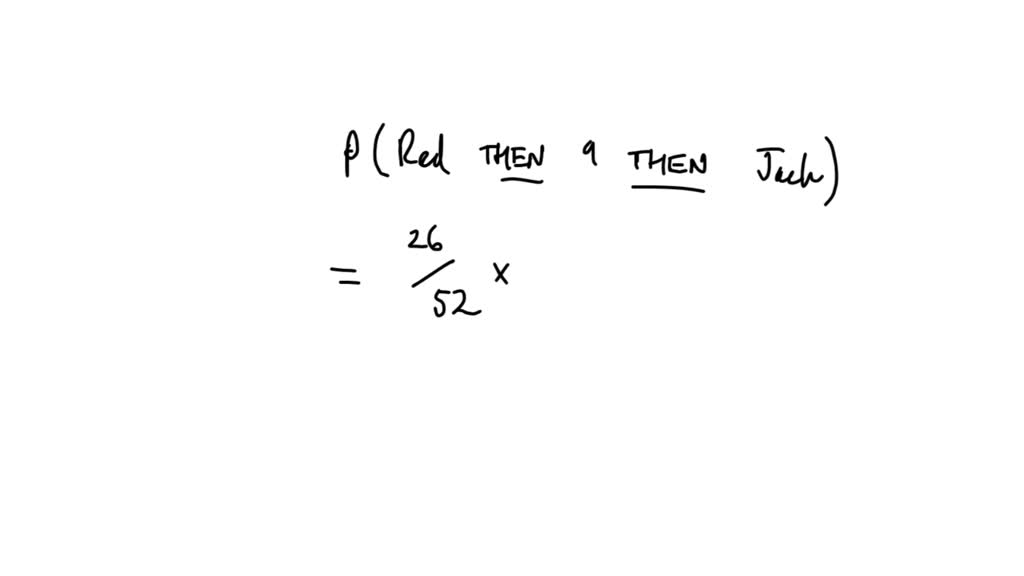 P(Red THEN 9 THEN Jack)
= 26/52 x